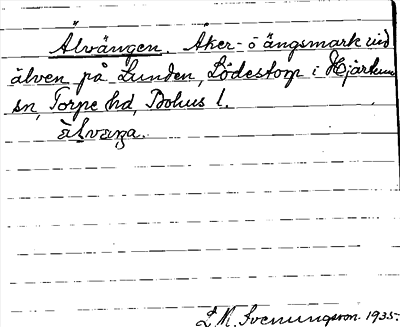 Älvängen. Åker- o ängsmark vid
älven på Lunden, Lödestorp i Hjärtum
sn, Torpe hd, Bohus l.
älvæŋa.
L M. Svenungsson. 1935.